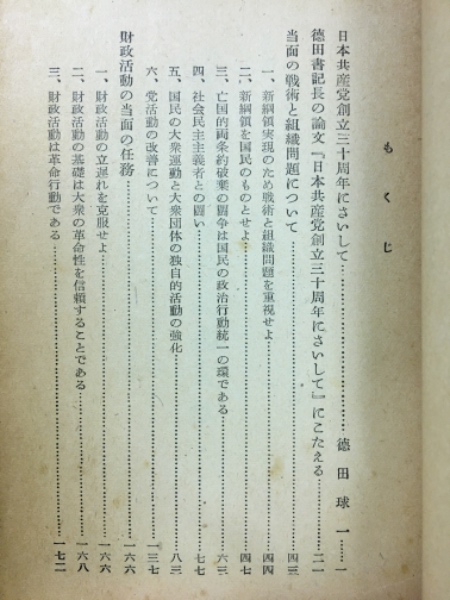 もくじ
日本共産党創立三十周年にさいして……………………徳田球一……一
徳田書記長の論文『日本共産党創立三十周年にさいして』にこたえる…………二一
当面の戦術と組織問題について……………………四三
一、新綱領実現のため戦術と組織問題を重視せよ……………………四四
二、新綱領を国民のものとせよ……………………四七
三、亡国的両条約破棄の闘争は国民の政治行動統一の環である……………………六三
四、社会民主主義者との闘い……………………七七
五、国民の大衆運動と大衆団体の独自的活動の強化……………………八三
六、党活動の改善について……………………一三七
財政活動の当面の任務……………………一六六
一、財政活動の立遅れを克服せよ……………………一六六
二、財政活動の基礎は大衆の革命性を信頼することである……………………一六八
三、財政活動は革命行動である……………………一七二